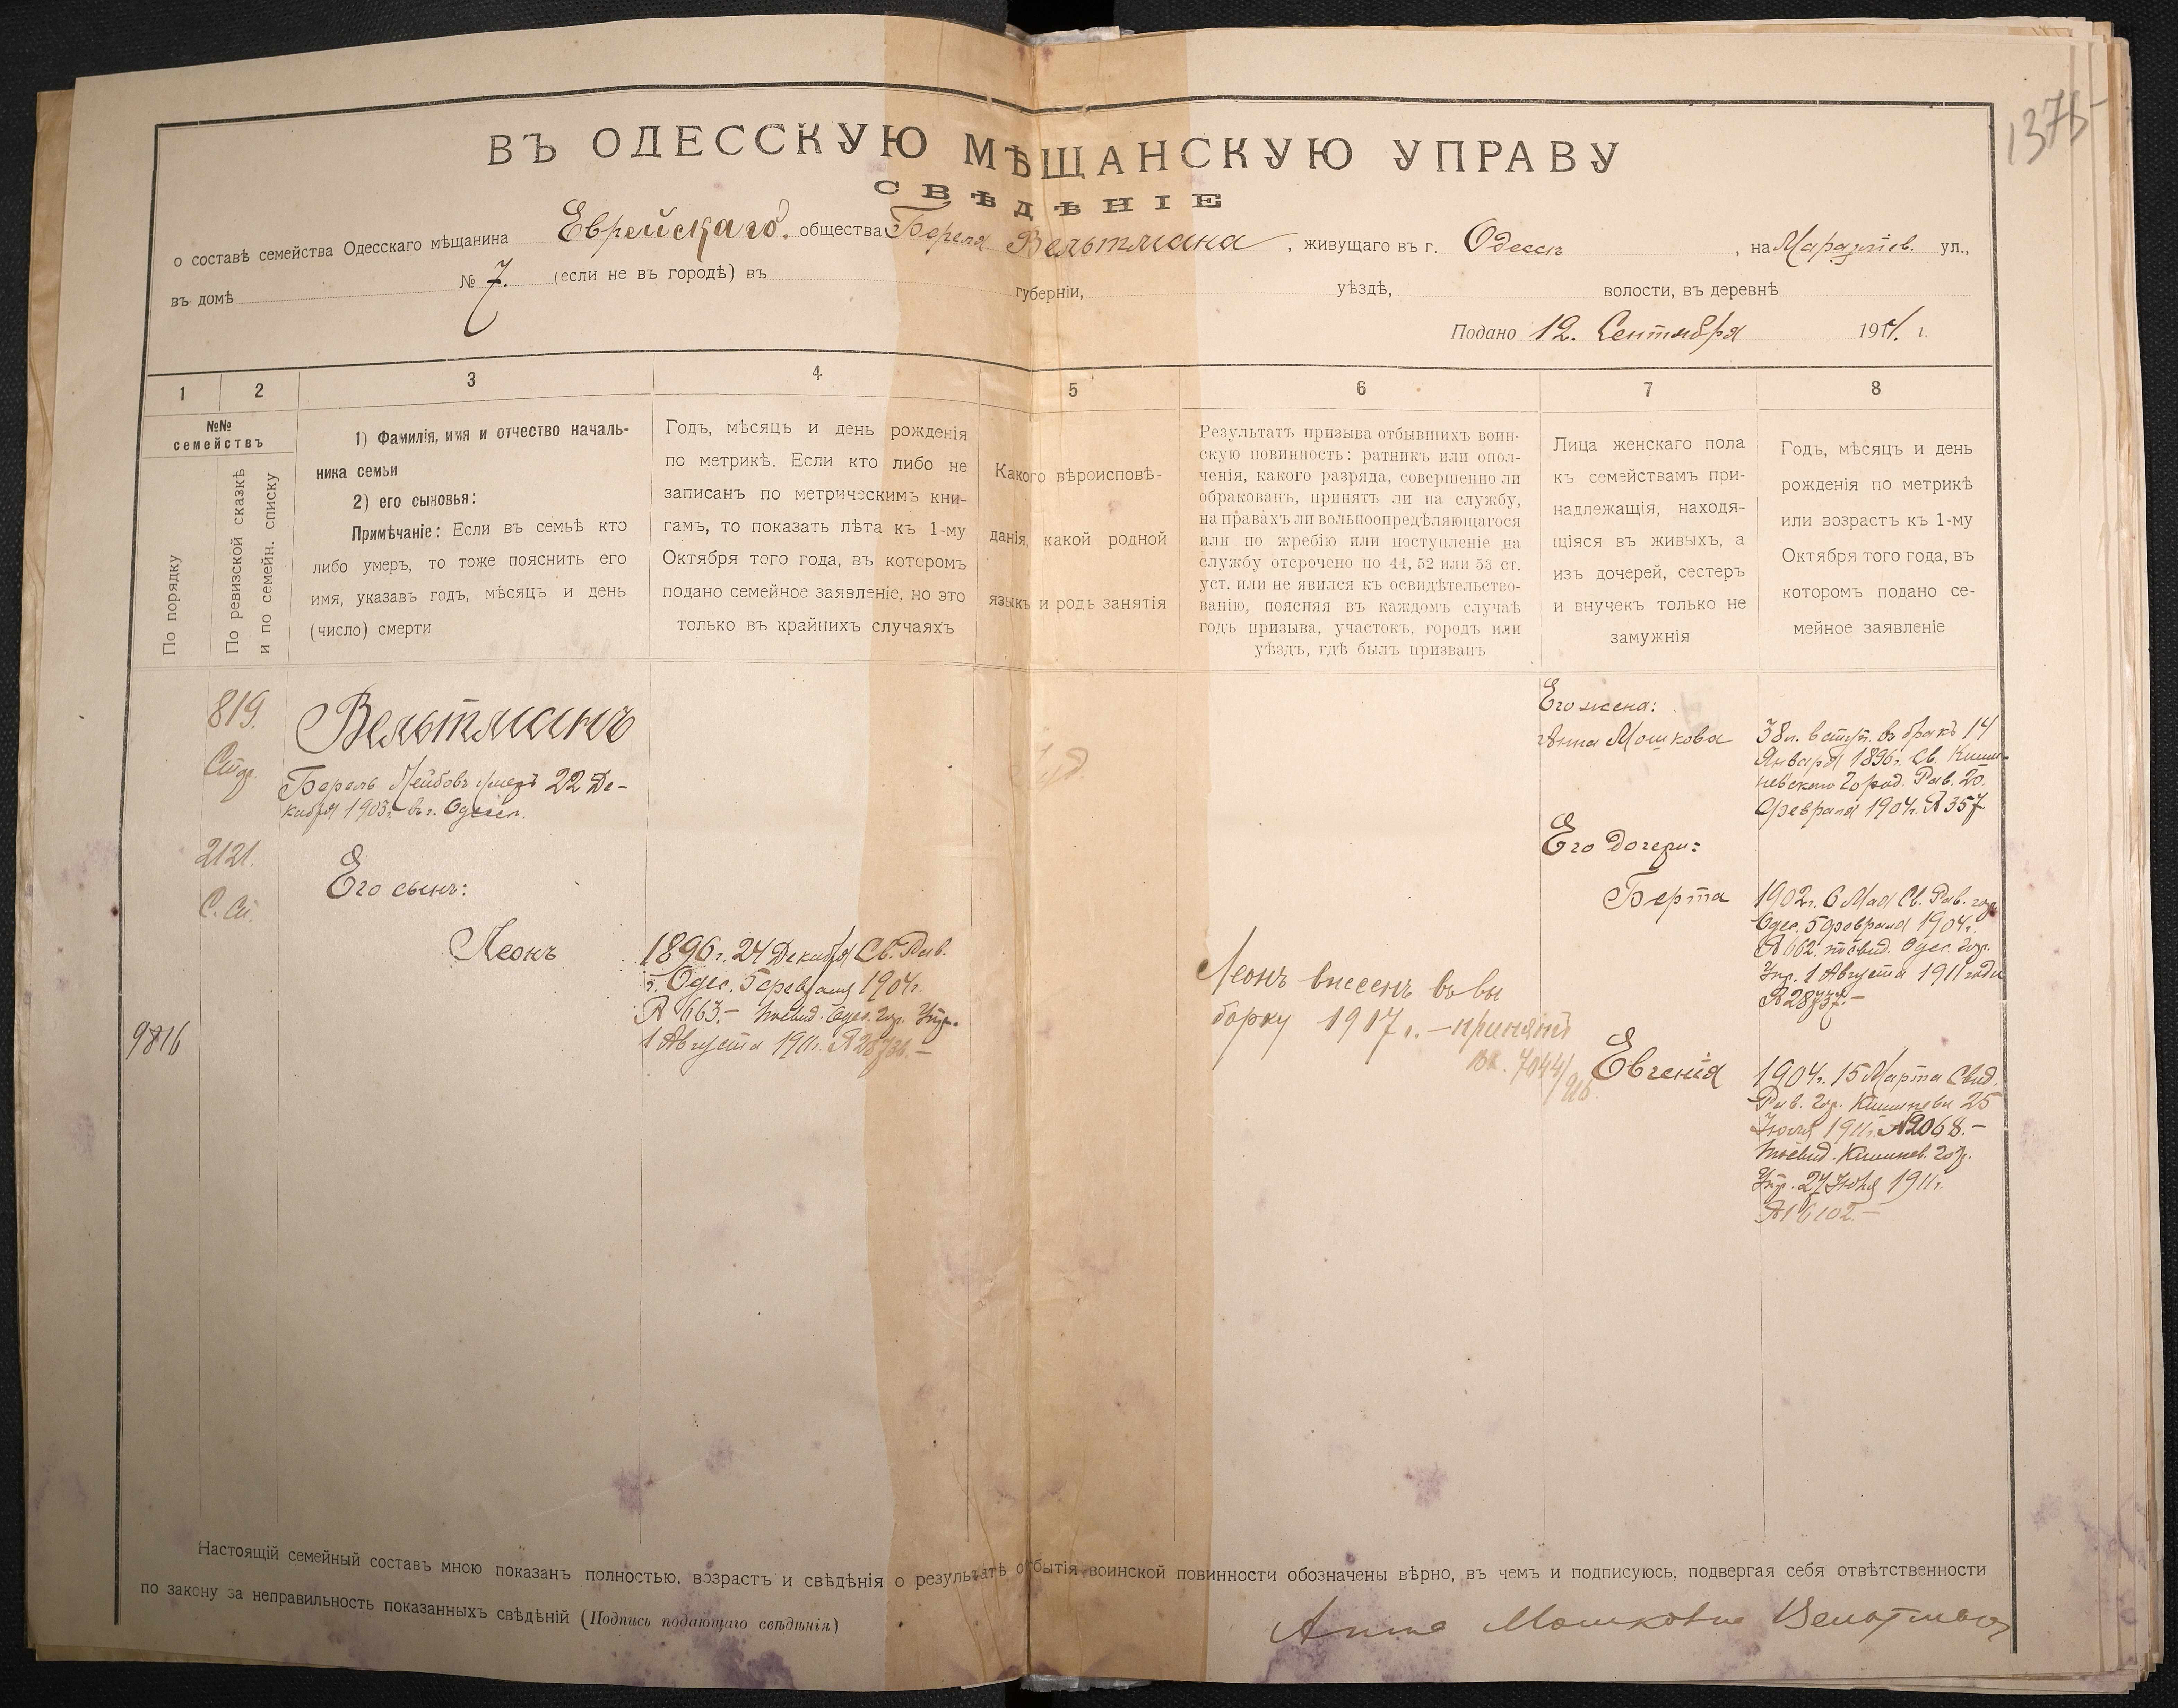 1375
ВЪ ОДЕССКУЮ МѢЩАНСКУЮ УПРАВУ
СВѢДѢНІЕ
о составѣ семейства Одесскаго мѣщанина Еврейскаго. общества Береля Вельтмана, живущаго въ г. Одессѣ, на Маразліев. ул.,
въ домѣ № 7. (если не въ городѣ) въ губерніи, уѣздѣ, волости, въ деревнѣ
Подано 12. Сентября 1911. г.
1 2 3 4 5 6 7 8
№№
семействъ
По порядку
По ревизской сказкѣ
и по семейн. списку
1) Фамилія, имя и отчество началь-
ника семьи
2) его сыновья:
Примѣчаніе: Если въ семьѣ кто
либо умеръ, то тоже пояснить его
имя, указавъ годъ, мѣсяцъ и день
(число) смерти
Годъ, мѣсяцъ и день рожденія
по метрикѣ. Если кто либо не
записанъ по метрическимъ кни-
гамъ, то показать лѣта къ 1-му
Октября того года, въ которомъ
подано семейное заявленіе, но это
только въ крайнихъ случаяхъ
Какого вѣроисповѣ-
данія, какой родной
языкъ и родъ занятія
Результатъ призыва отбывшихъ воин-
скую повинность: ратникъ или опол-
ченія, какого разряда, совершенно ли
обракованъ, принятъ ли на службу,
на правахъ ли вольноопредѣляющагося
или по жребію или поступленіе на
службу отсрочено по 44, 52 или 53 ст.
уст. или не явился къ освидѣтельство-
ванію, поясняя въ каждомъ случаѣ
годъ призыва, участокъ, городъ или
уѣздъ, гдѣ былъ призванъ
Лица женскаго пола
къ семействамъ при-
надлежащія, находя-
щіяся въ живыхъ, а
изъ дочерей, сестеръ
и внучекъ только не
замужнія
Годъ, мѣсяцъ и день
рожденія по метрикѣ
или возрастъ къ 1-му
Октября того года, въ
которомъ подано се-
мейное заявленіе
819.
2121.
С. Сп.
9816
Вельтманъ
Берель Лейбовъ умеръ 22 Де-
кабря 1903г. въ г. Одессѣ.
Его сынъ:
Леонъ
1896г. 24 Декабря Св. Рав.
г. Одес. 5 февраля 1904г.
№ 663.– Одес. гор. Упр.
1 Августа 1911г. № 28736.–
Іуд.
Леонъ внесенъ въ вы
борку 1917 г. – принятъ
вх. 7044/916.
Его жена:
Анна Мошкова
38 л. вступ. въ бракъ 14
Января 1896г. Св. Киши-
невскаго Город. Рав. 20
февраля 1904г. № 357.
Его дочери:
Берта
1902г. 6 Мая Св. Рав. гор.
Одес. 5 февраля 1904г.
№ 662. Одес. гор.
Упр. 1 Августа 1911 года
№ 28737.–
Евгенія
1904г. 15 Марта Свид.
Рав. гор. Кишинева 25
1911г. № 2068.–
Кишинев. гор.
Упр. 27 1911г.
№ 16102.–
Настоящій семейный составъ мною показанъ полностью, возрастъ и свѣдѣнія о результатѣ отбытія воинской повинности обозначены вѣрно, въ чемъ и подписуюсь, подвергая себя отвѣтственности
по закону за неправильность показанныхъ свѣдѣній (Подпись подающаго свѣдѣнія)
Анна Мошковна Вельтман